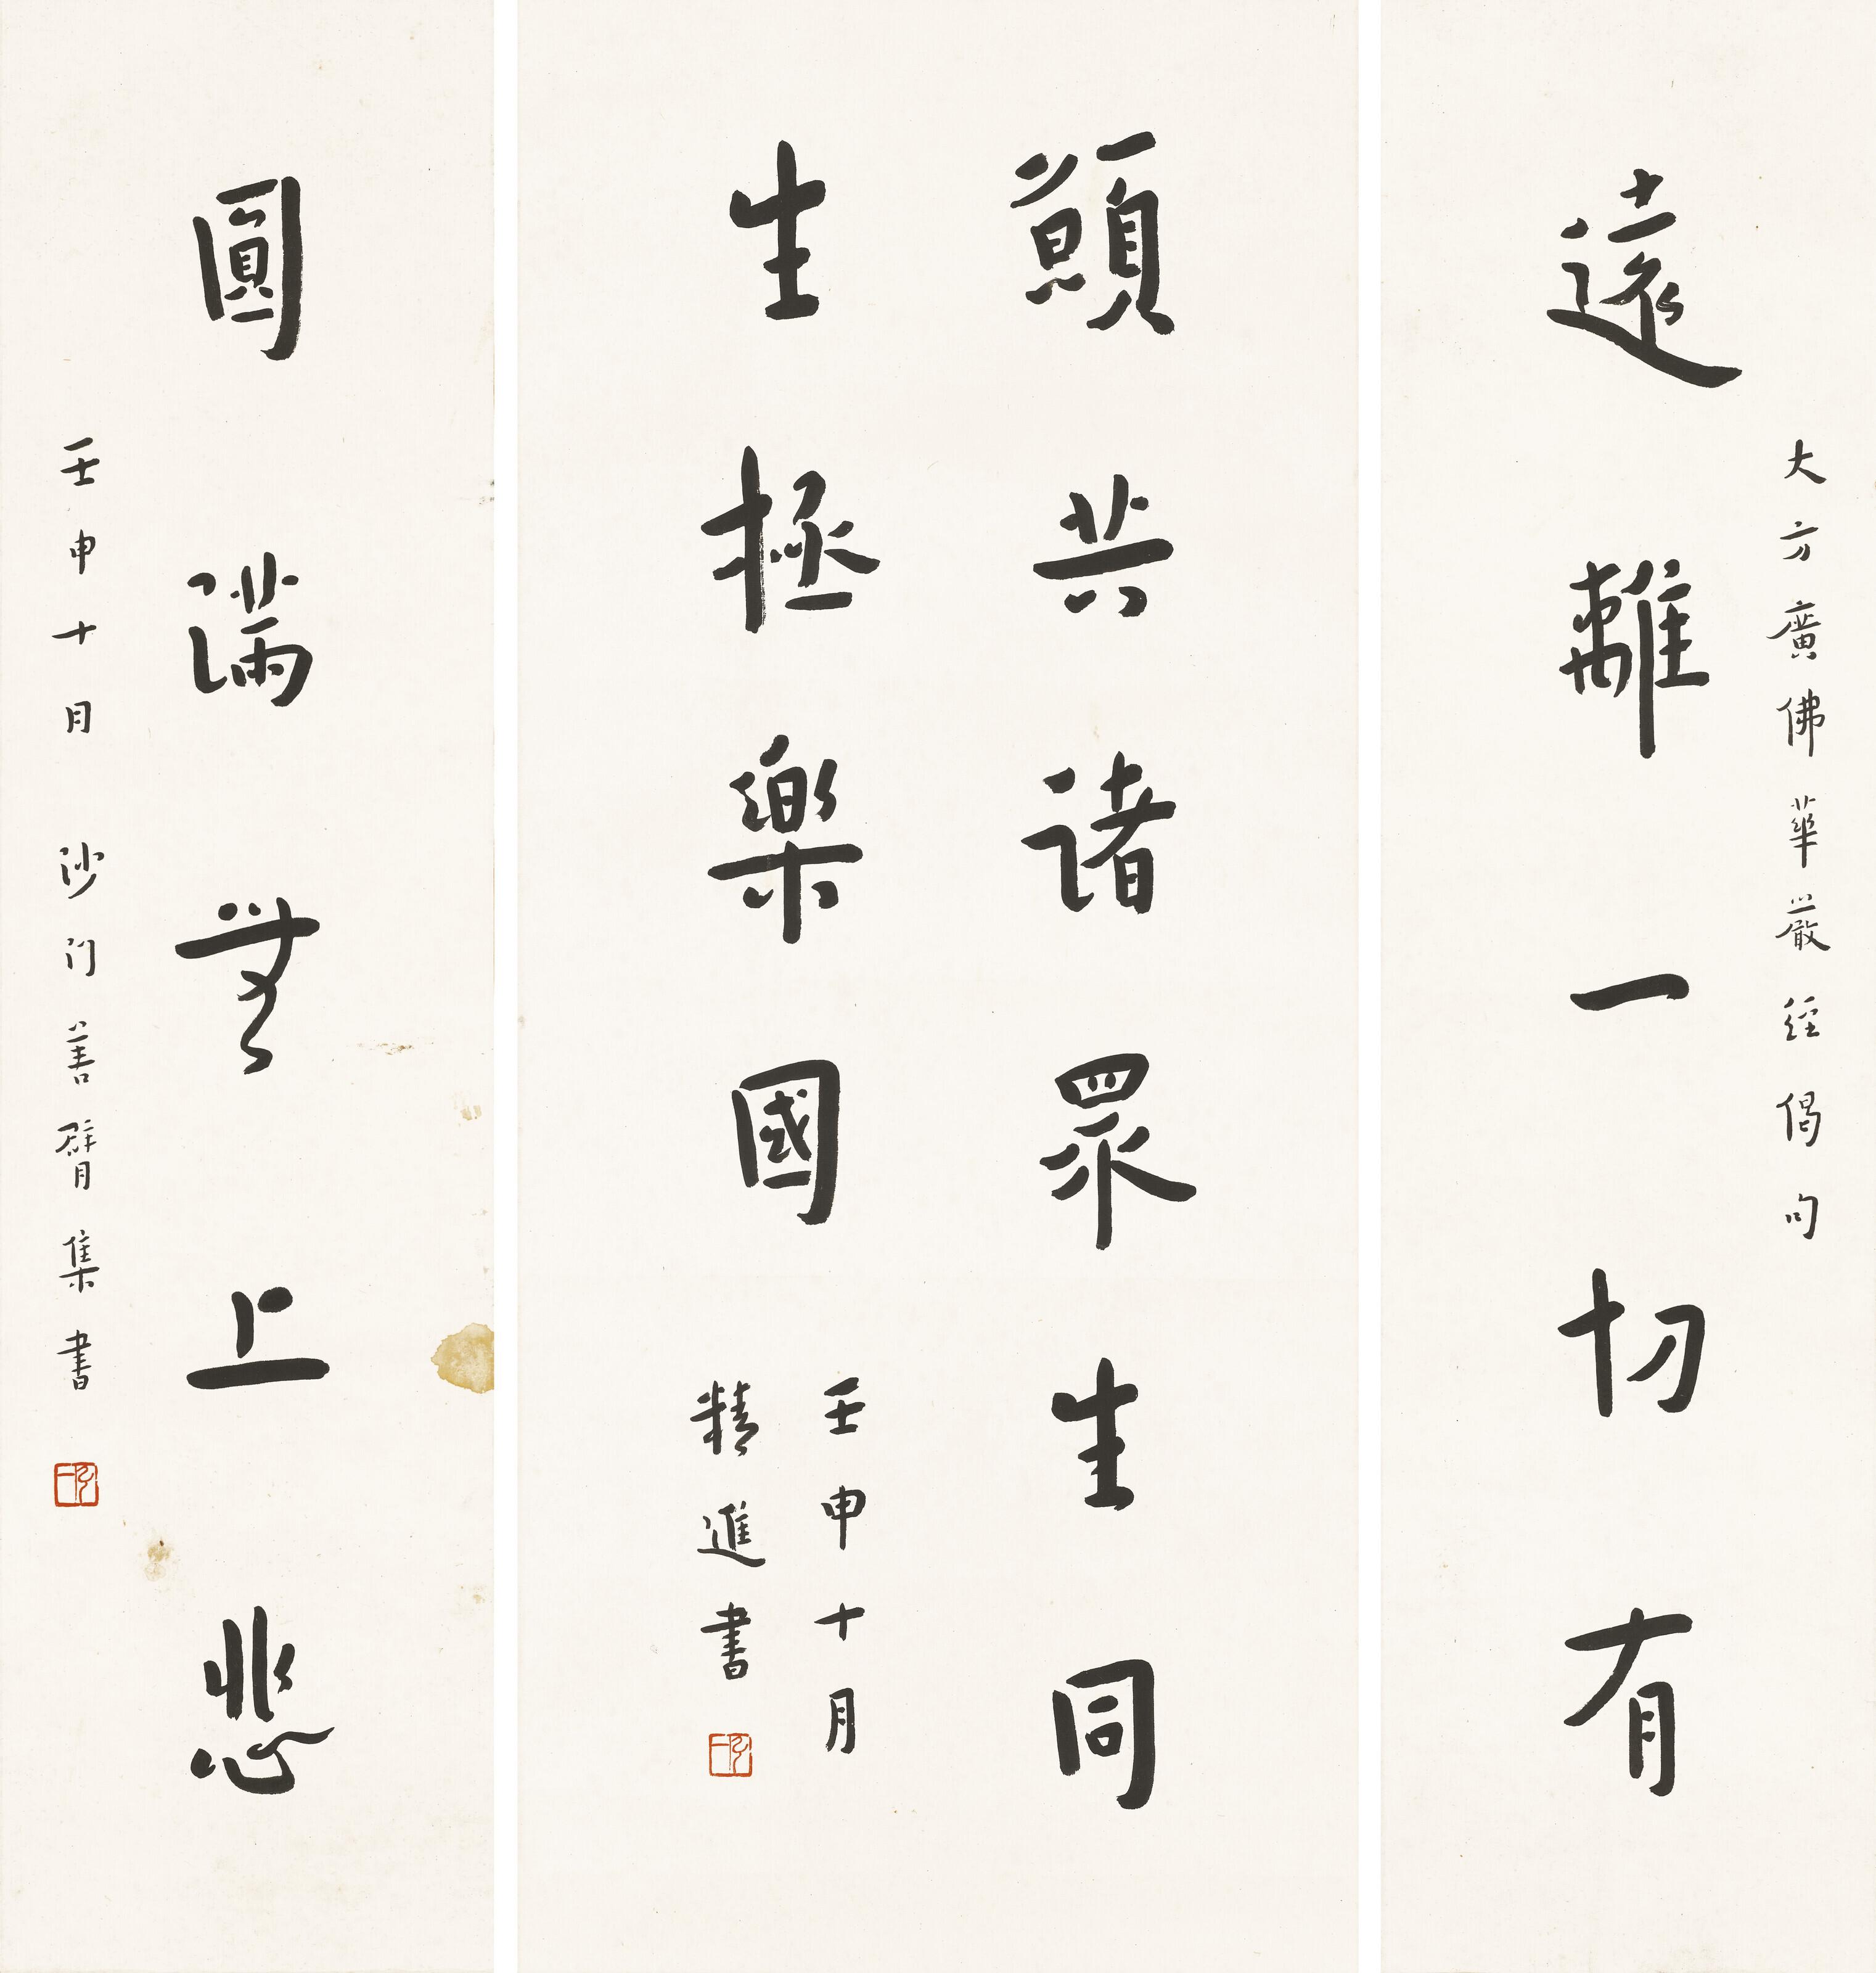 大方廣佛華嚴經偈句
遠離一切有
願共諸眾生同
生極樂國
壬申十月
精進書
圓滿無上悲
壬申十月 沙门善臂集書